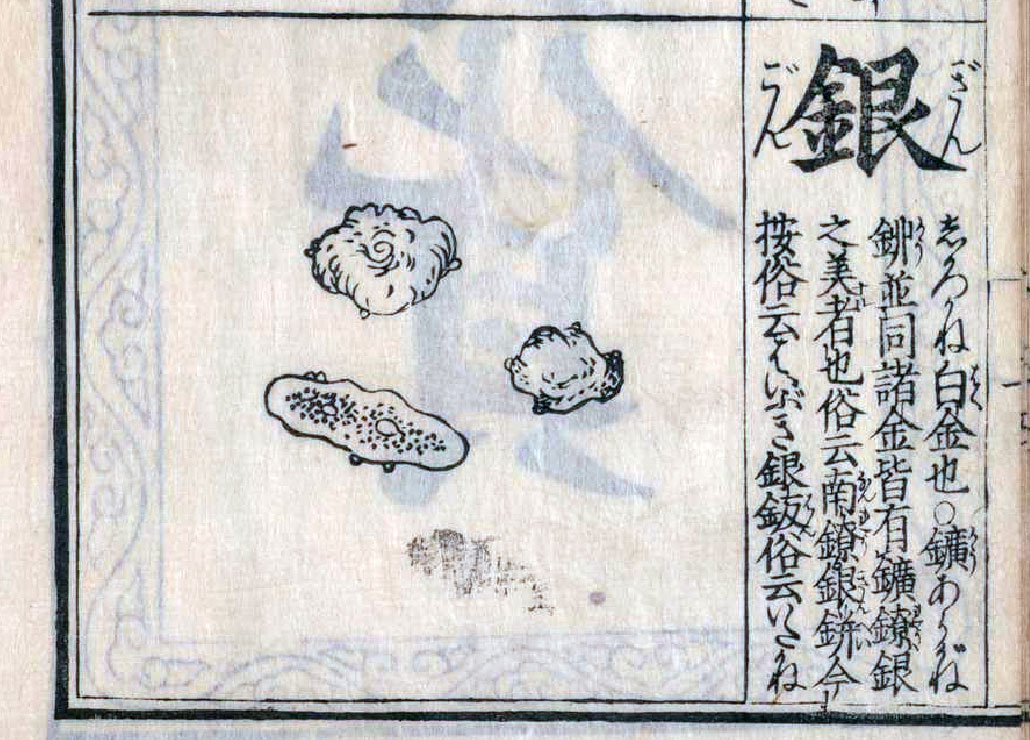 銀
ぎん
ごん
しろかね白金也○鑛あらがね
鉚並同諸金皆有鑛鐐銀
之美者也俗云南鐐銀鉼今
按俗云はいふき銀鈑俗云いたかね